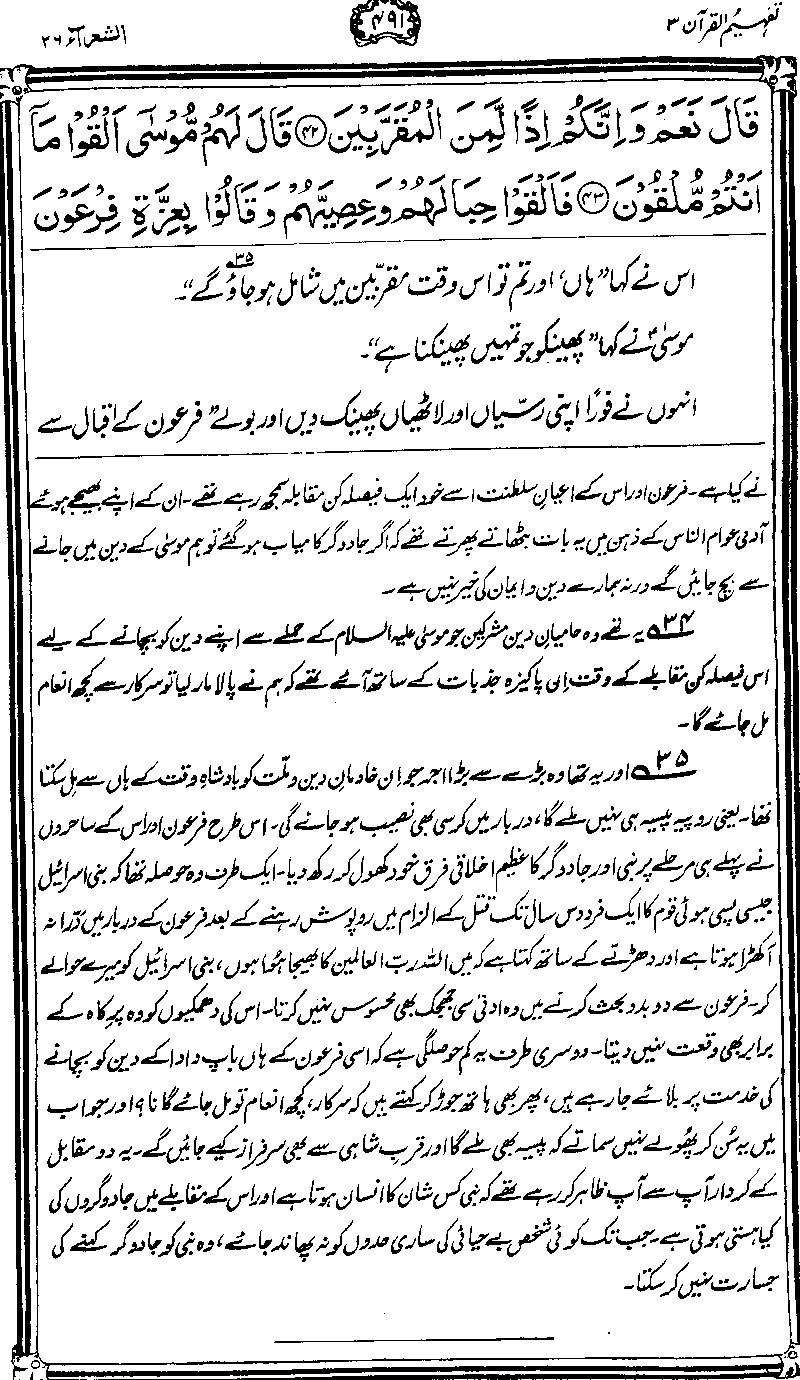 تفہیم القرآن ۳
۴۹۱
الشعراء ۲۶
قَالَ نَعَمْ وَاِنَّكُمْ اِذًا لَّمِنَ الْمُقَرَّبِيْنَ ﴿۴۲﴾ قَالَ لَهُمْ مُّوْسٰٓى اَلْقُوْا مَاۤ
اَنْتُمْ مُّلْقُوْنَ ﴿۴۳﴾ فَاَلْقَوْا حِبَالَهُمْ وَعِصِيَّهُمْ وَقَالُوْا بِعِزَّةِ فِرْعَوْنَ
اس نے کہا ”ہاں، اور تم تو اس وقت مقرّبین میں شامل ہو جاؤ گے“۔ ۳۵
موسیٰؑ نے کہا ”پھینکو جو تمہیں پھینکنا ہے“۔
انہوں نے فورًا اپنی رسّیاں اور لاٹھیاں پھینک دیں اور بولے ”فرعون کے اقبال سے
نے کیا ہے۔ فرعون اور اس کے اعیانِ سلطنت اسے خود ایک فیصلہ کن مقابلہ سمجھ رہے تھے۔ ان کے اپنے بھیجے ہوئے
آدمی عوام الناس کے ذہن میں یہ بات بٹھاتے پھرتے تھے کہ اگر جادوگر کامیاب ہو گئے تو ہم موسیٰ کے دین میں جانے
سے بچ جائیں گے ورنہ ہمارے دین و ایمان کی خیر نہیں ہے۔
۳۴ یہ تھے وہ حامیانِ دینِ مشرکین جو موسیٰ علیہ السلام کے حملے سے اپنے دین کو بچانے کے لیے
اس فیصلہ کن مقابلے کے وقت اِن پاکیزہ جذبات کے ساتھ آئے تھے کہ ہم نے پالا مار لیا تو سرکار سے کچھ انعام
مل جائے گا۔
۳۵ اور یہ تھا وہ بڑے سے بڑا اجر جو ان خادمانِ دین و ملّت کو بادشاہِ وقت کے ہاں سے مل سکتا
تھا۔ یعنی روپیہ پیسہ ہی نہیں ملے گا، دربار میں کرسی بھی نصیب ہو جائے گی۔ اس طرح فرعون اور اس کے ساحروں
نے پہلے ہی مرحلے پر نبی اور جادوگر کا عظیم اخلاقی فرق خود کھول کر رکھ دیا۔ ایک طرف وہ حوصلہ تھا کہ بنی اسرائیل
جیسی پسی ہوئی قوم کا ایک فرد دس سال تک قتل کے الزام میں روپوش رہنے کے بعد فرعون کے دربار میں درّانہ
آ کھڑا ہوتا ہے اور دھڑلّے کے ساتھ کہتا ہے کہ میں اللہ ربّ العالمین کا بھیجا ہُوا ہوں، بنی اسرائیل کو میرے حوالے
کر۔ فرعون سے دو بدو بحث کرنے میں وہ ادنیٰ سی جھجک بھی محسوس نہیں کرتا۔ اس کی دھمکیوں کو وہ پرِ کاہ کے
برابر بھی وقعت نہیں دیتا۔ دوسری طرف یہ کم حوصلگی ہے کہ اسی فرعون کے ہاں باپ دادا کے دین کو بچانے
کی خدمت پر بلائے جا رہے ہیں، پھر بھی ہاتھ جوڑ کر کہتے ہیں کہ سرکار، کچھ انعام تو مل جائے گا نا؟ اور جواب
میں یہ سُن کر پھولے نہیں سماتے کہ پیسہ بھی ملے گا اور قربِ شاہی سے بھی سرفراز کیے جائیں گے۔ یہ دو مقابل
کے کردار آپ سے آپ ظاہر کر رہے تھے کہ نبی کس شان کا انسان ہوتا ہے اور اس کے مقابلے میں جادوگروں کی
کیا ہستی ہوتی ہے۔ جب تک کوئی شخص بے حیائی کی ساری حدوں کو نہ پھاند جائے، وہ نبی کو جادوگر کہنے کی
جسارت نہیں کر سکتا۔